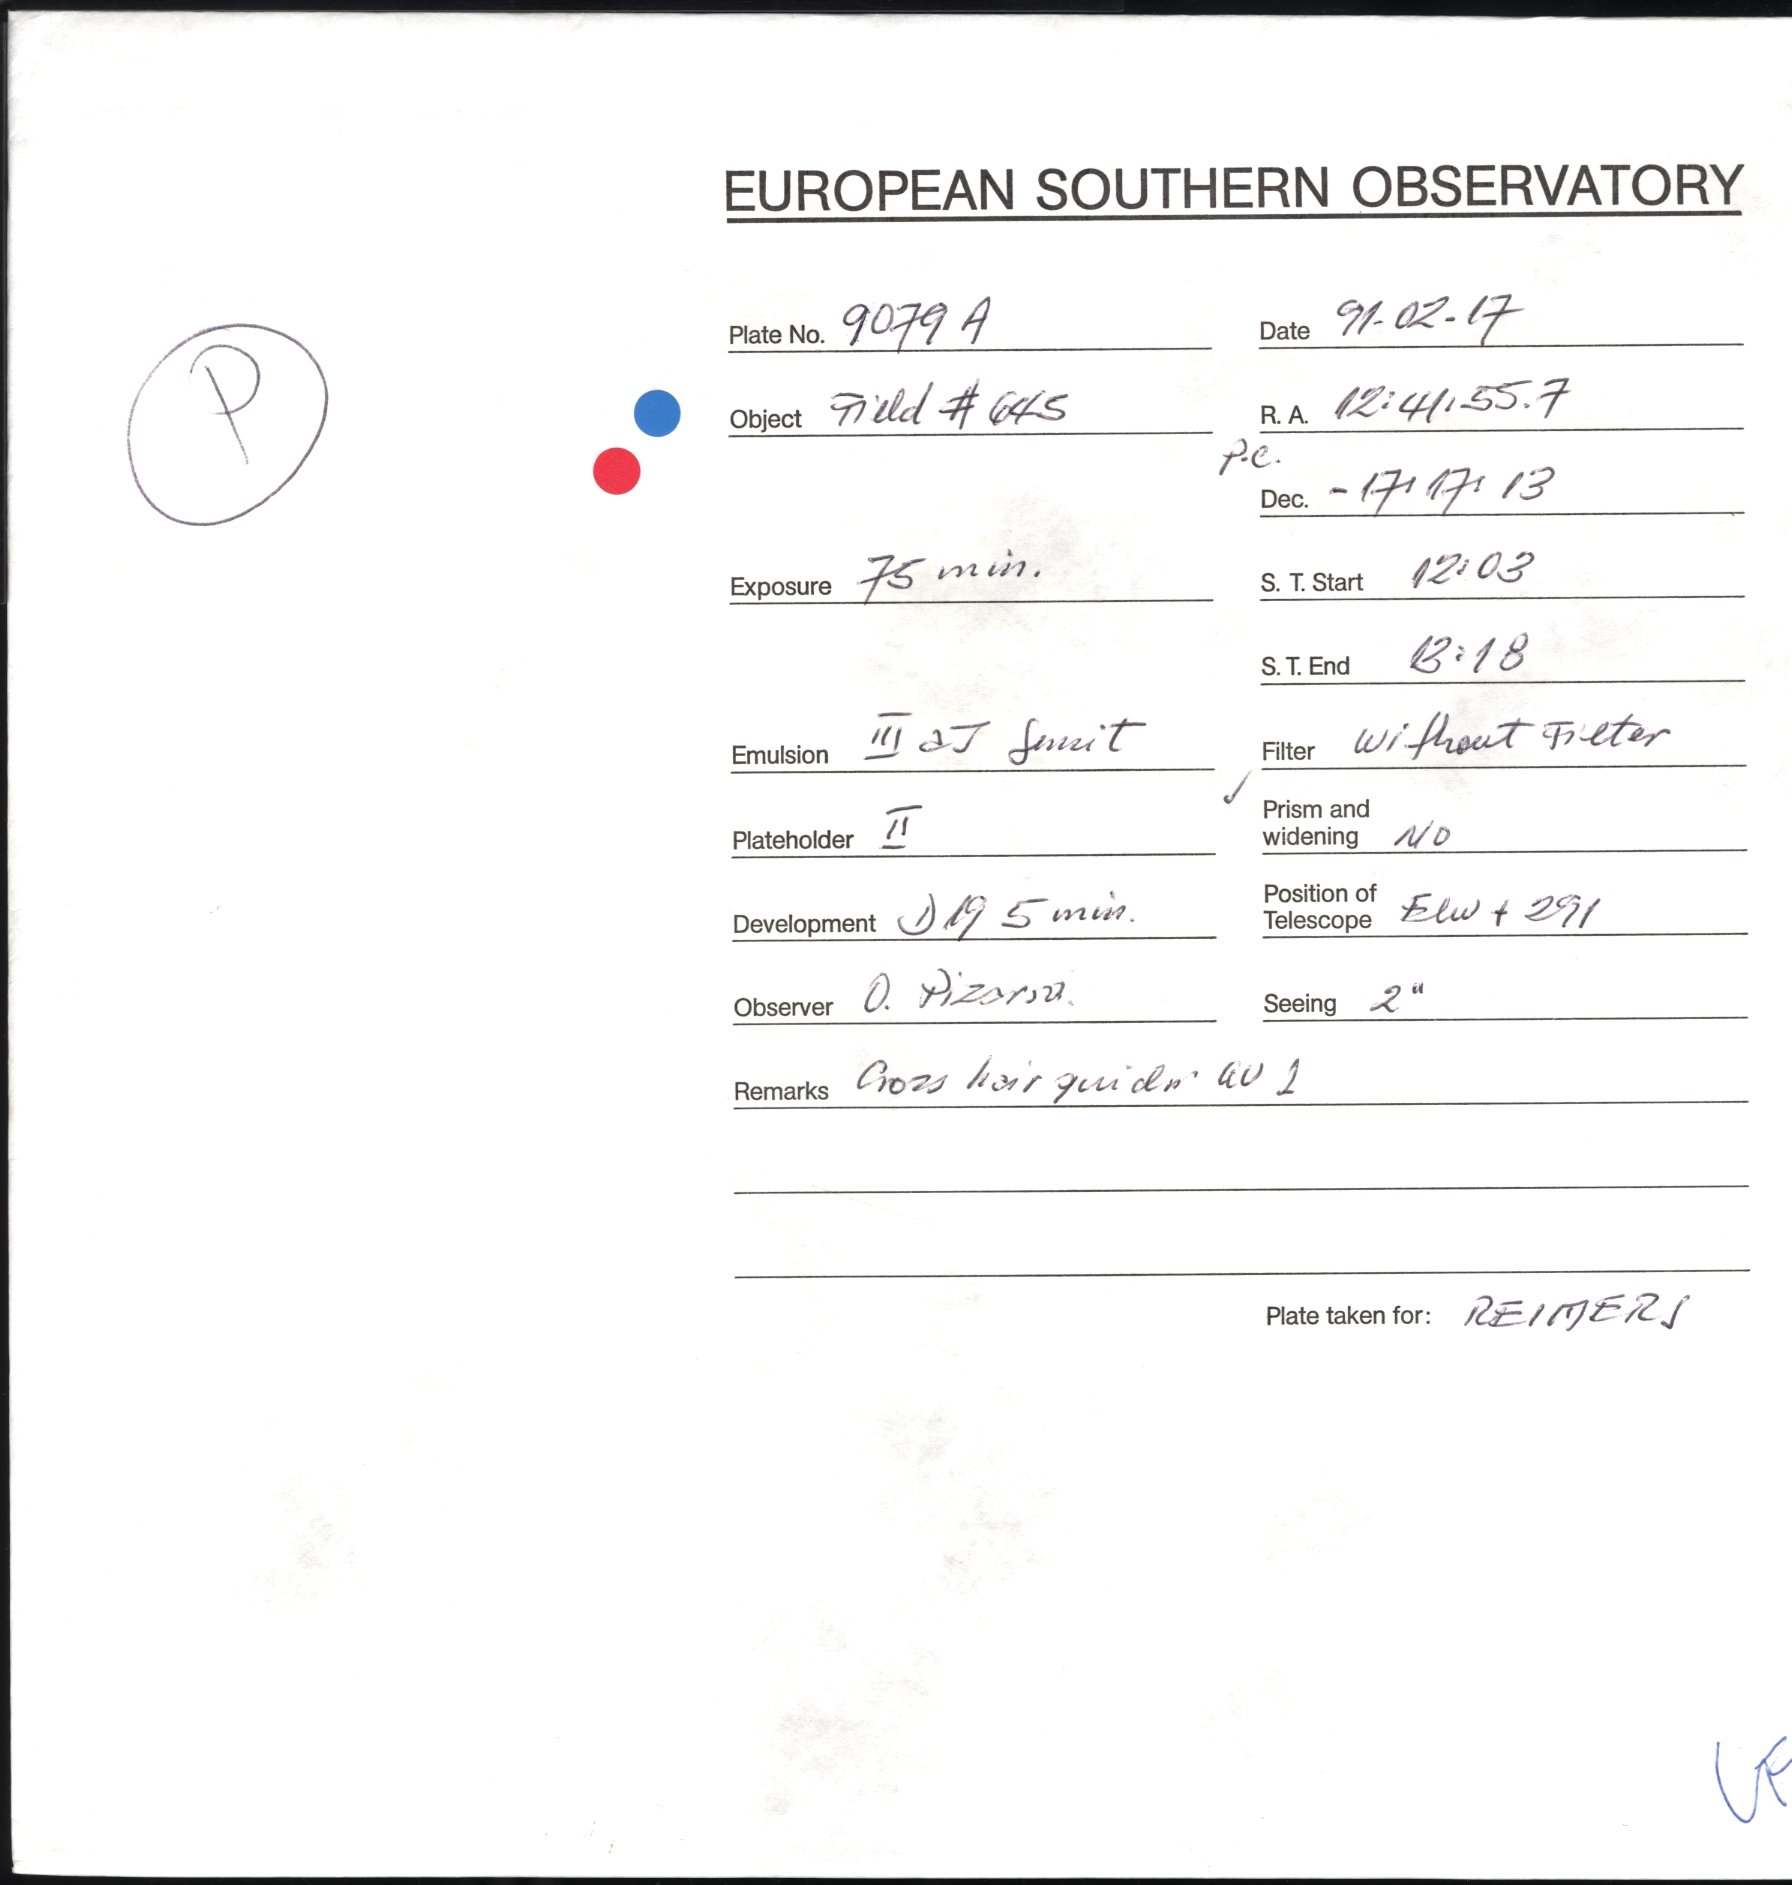 EUROPEAN SOUTHERN OBSERVATORY
P
Plate No. 9079 A Date 91-02-17
Object Field # 645 R. A. 12:41:55.7
P.C.
Dec. -17:17:13
Exposure 75 min. S. T. Start 12:03
S. T. End 13:18
Emulsion III aJ Filter without Filter
Plateholder II Prism and
widening NO
Development D19 5 min. Position of
Telescope + 291
Observer O. Pizarro. Seeing 2"
Remarks Cross hair guider 1
Plate taken for: REIMERS